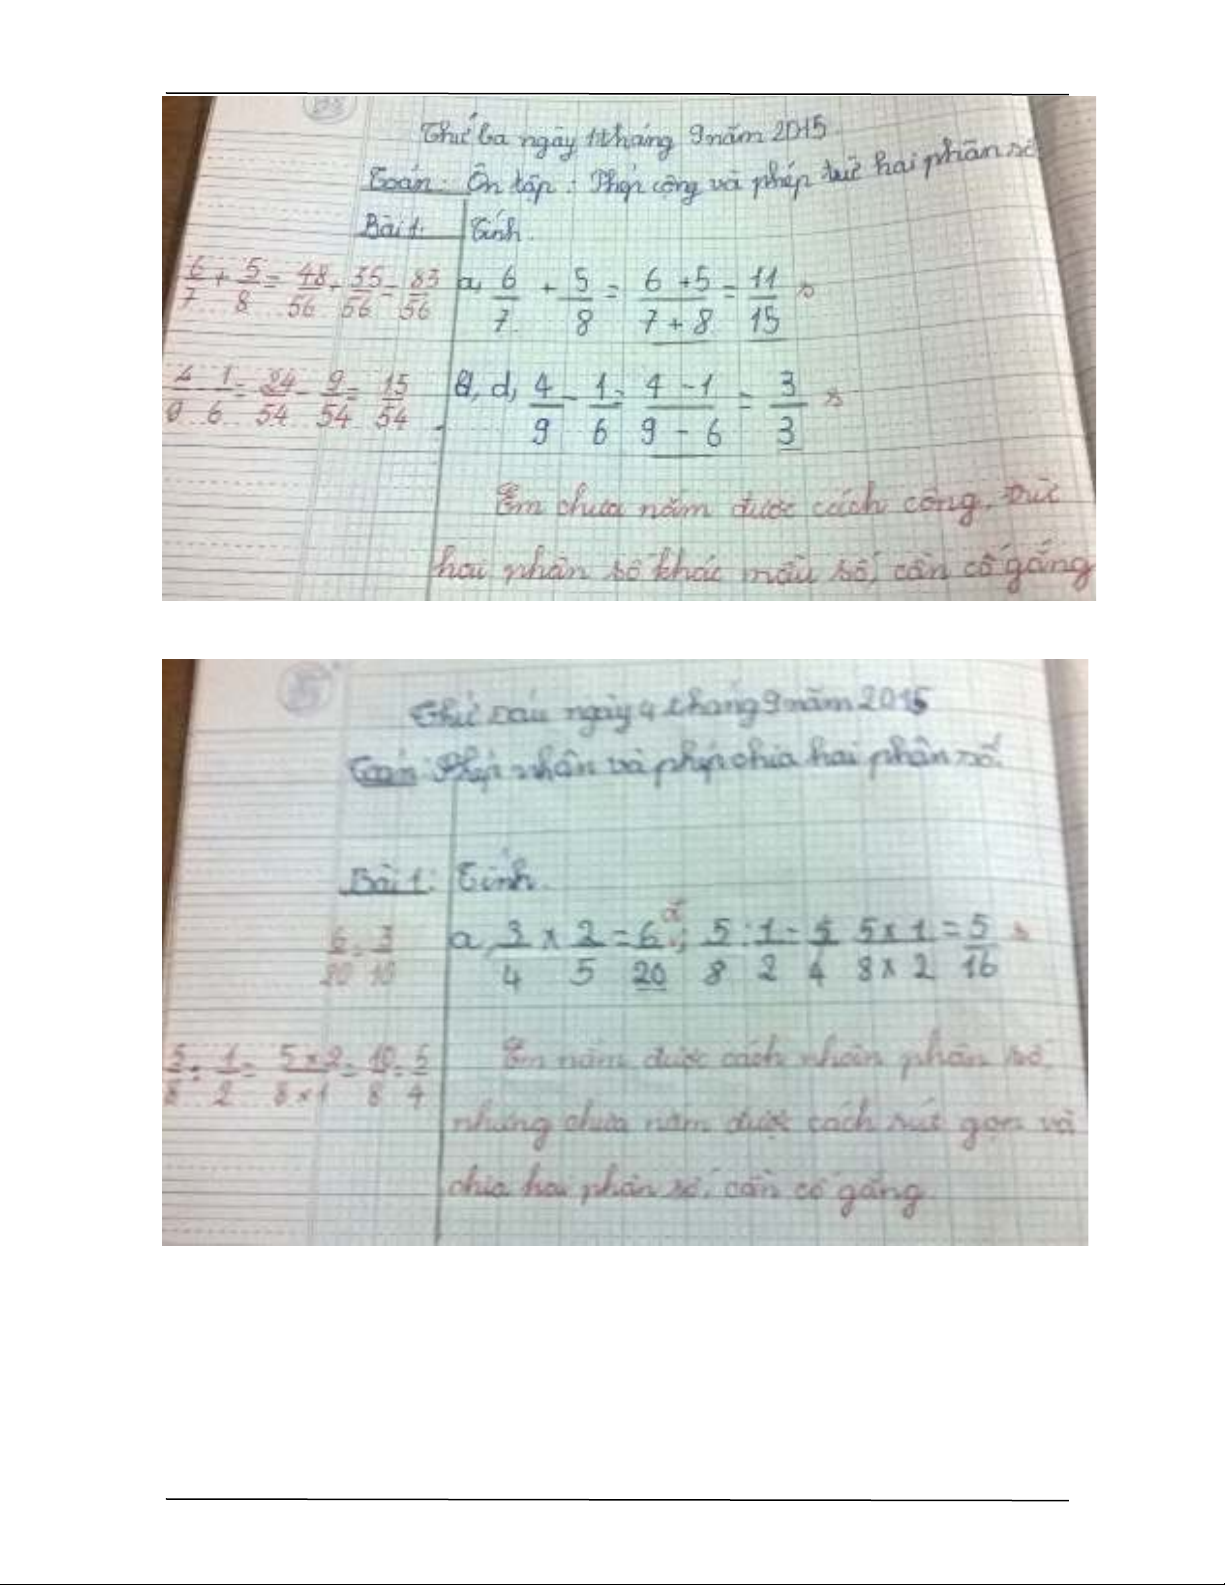 Thứ ba ngày 1 tháng 9 năm 2015
Toán: Ôn tập: Phép cộng và phép trừ hai phân số
Bài 1: Tính.
6/7 + 5/8 = 48/56 + 35/56 = 83/56 a, 6/7 + 5/8 = 6+5/7+8 = 11/15 s
4/9 - 1/6 = 24/54 - 9/54 = 15/54 d, 4/9 - 1/6 = 4-1/9-6 = 3/3 s
Em chưa nắm được cách cộng, trừ
hai phân số khác mẫu số, cần cố gắng
5
Thứ sáu ngày 4 tháng 9 năm 2015
Toán: Phép nhân và phép chia hai phân số.
Bài 1: Tính.
6/20 = 3/10 a, 3/4 x 2/5 = 6/20; 5/8 : 1/2 = 5/4 5x1/8x2 = 5/16 s
5/8 : 1/2 = 5x2/8x1 = 10/8 = 5/4 Em nắm được cách nhân phân số,
nhưng chưa nắm được cách rút gọn và
chia hai phân số, cần cố gắng